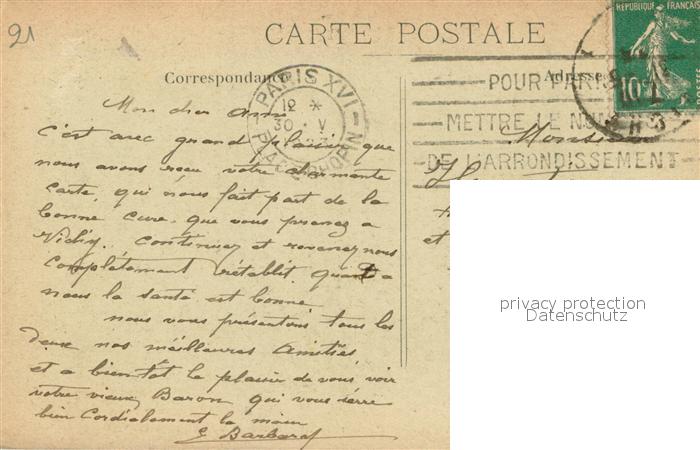 21
CARTE POSTALE
RÉPUBLIQUE FRANÇAISE
10c
POSTES
Correspondance
Adresse
PARIS XVI
12 *
30 V
PLACE CHOPIN
POUR PARIS
METTRE LE N
DE L'ARRONDISSEMENT
Mon cher Ami
c'est avec grand plaisir que
nous avons reçu votre charmante
carte, qui nous fait part de la
bonne cure que vous prenez a
Vichy. Continuez et revenez nous
complétement rétablit. quand a
nous la santé est bonne
nous vous présentons tous les
deux nos meilleures Amitiés
et a bientôt le plaisir de vous voir
votre vieux Baron qui vous serre
bien Cordialement la main
Monsieur
et
privacy protection
Datenschutz